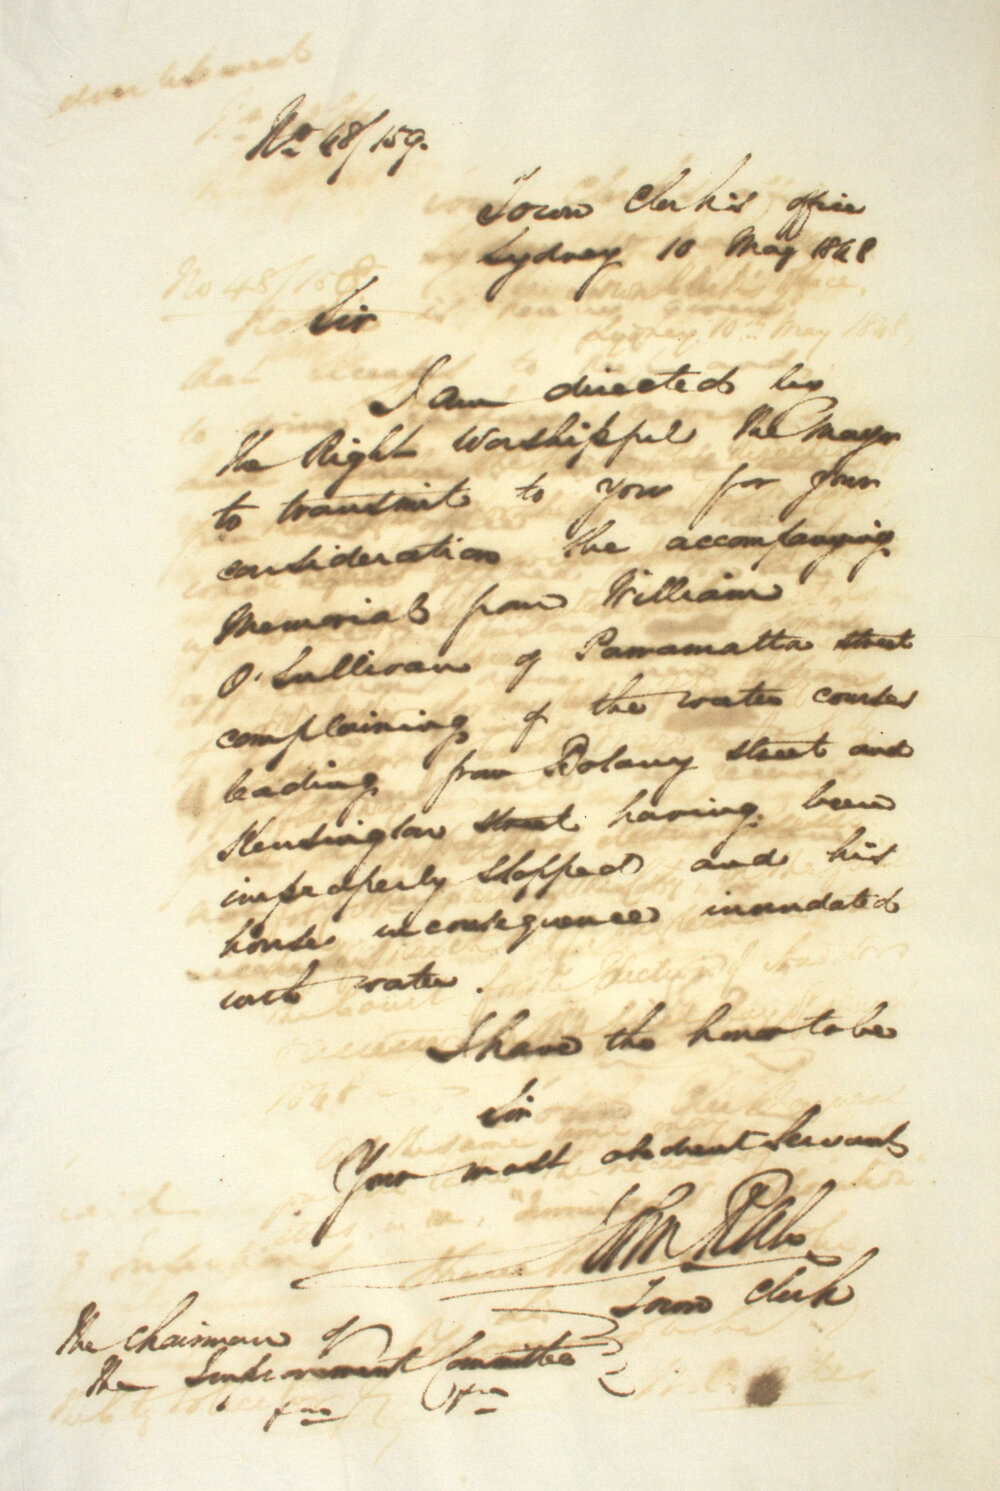 No 48/159.
Town Clerk's office
Sydney 10 May 1848
Sir
I am directed by
the Right Worshipful the Mayor
to transmit to you for your
consideration the accompanying
Memorial from William
O'Sullivan of Parramatta street
complaining of the water courses
leading from Botany street and
Kensington street having been
improperly stopped and his
house in consequence inundated
with water.
I have the honor to be
Sir
Your most obedient Servant
John Rae
Town Clerk
The Chairman of
the Improvement Committee